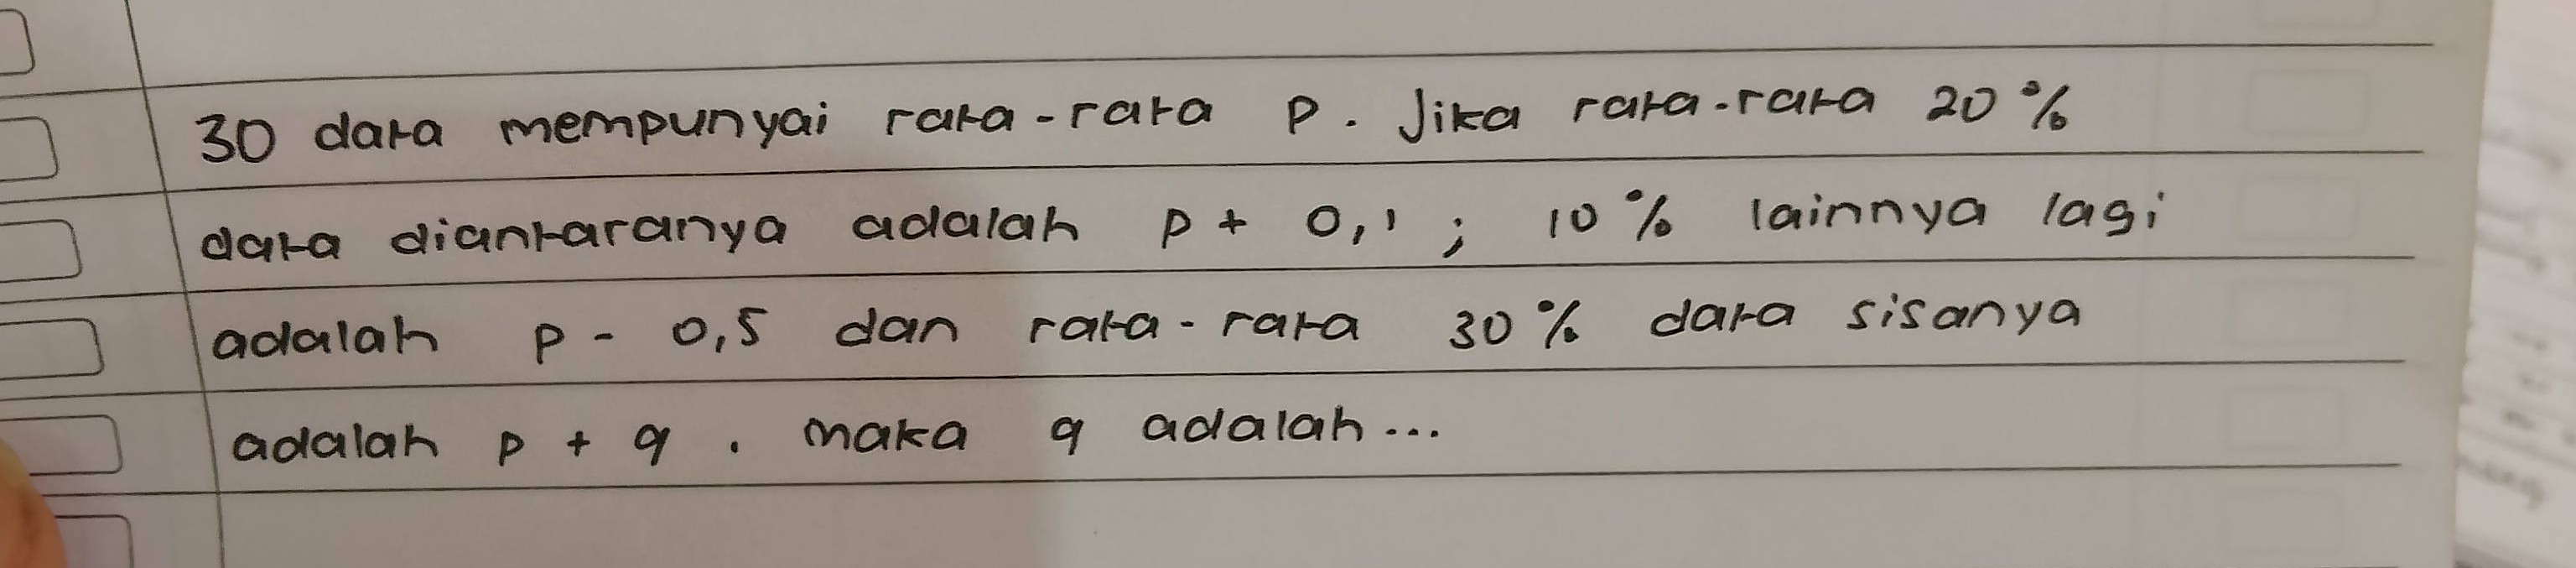 30 data mempunyai rata-rata p. Jika rata-rata 20%
data diantaranya adalah p + 0,1 ; 10% lainnya lagi
adalah p - 0,5 dan rata-rata 30% data sisanya
adalah p + q. maka q adalah...